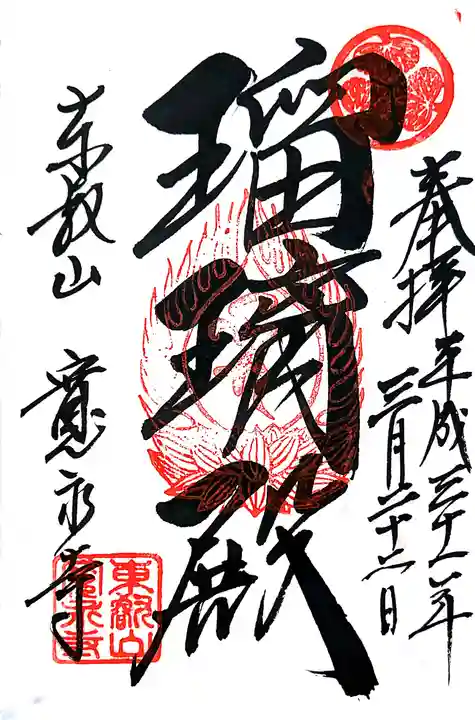 奉拝
平成三十一年
三月二十六日
瑠璃殿
東叡山 寛永寺
東叡山
寛永寺